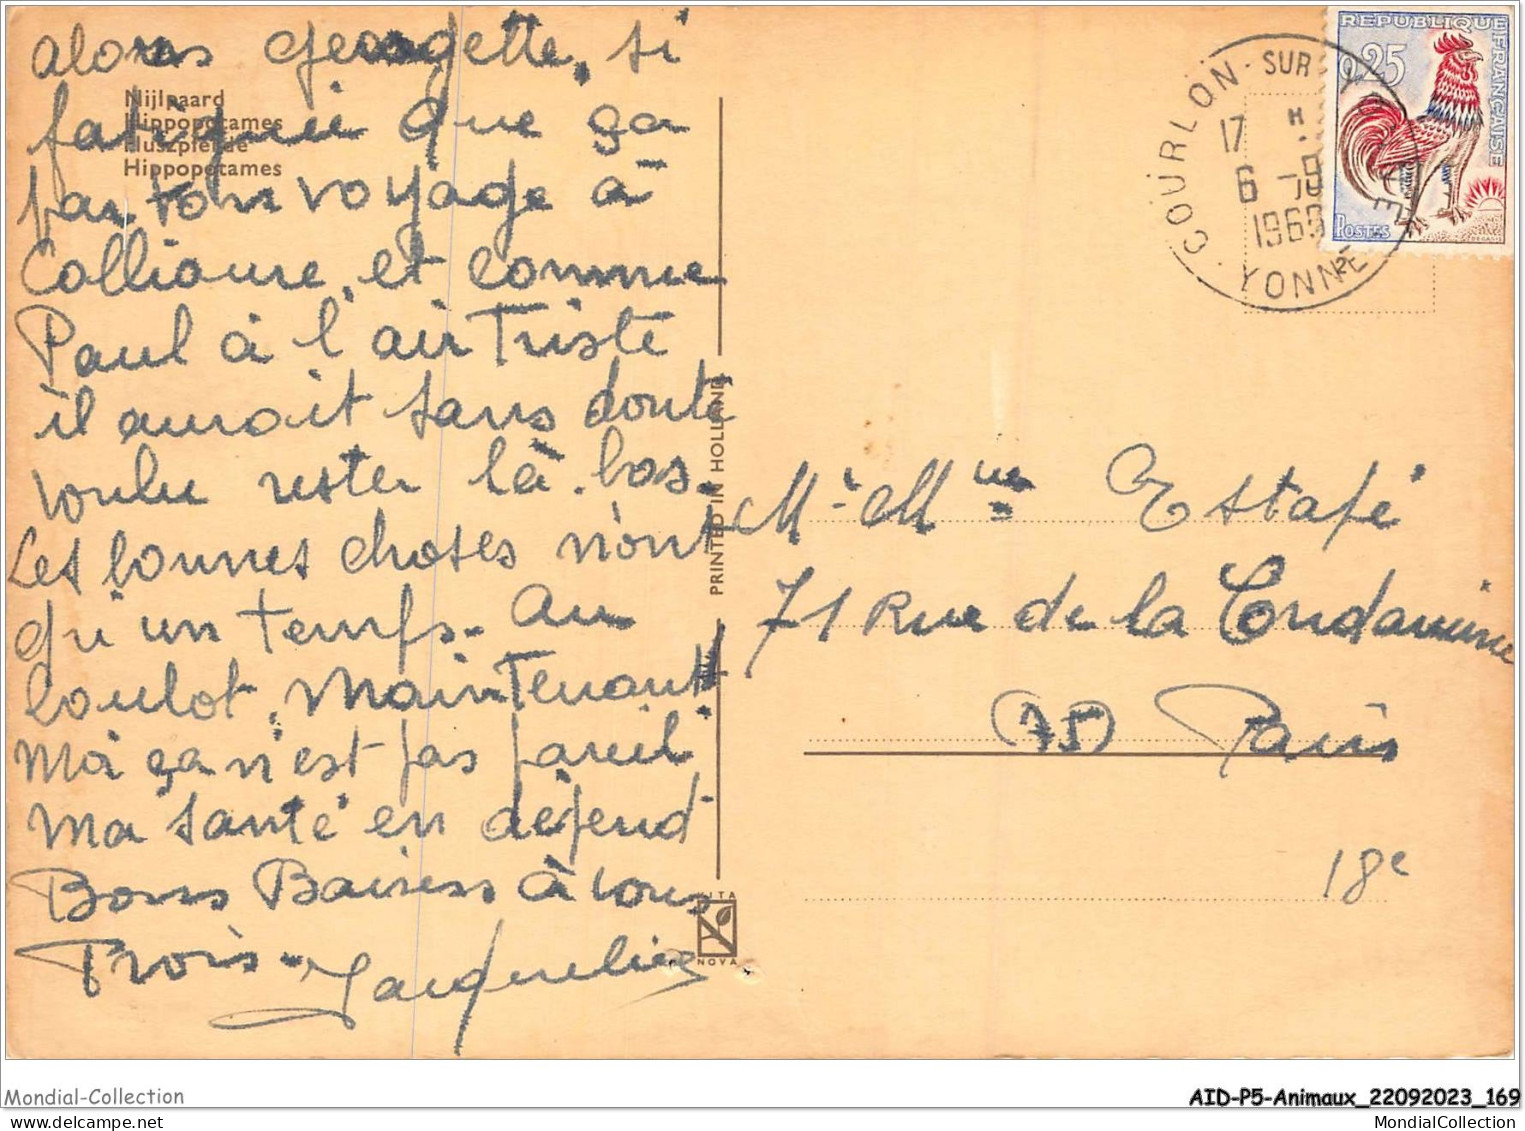 alors georgette, si
fatiguée que ça
par ton voyage à
Collioure, et comme
Paul à l'air Triste
il aurait sans doute
voulu rester là-bas.
Les bonnes choses n'ont
qu'un temps. Au
boulot, Maintenant!
Moi ça n'est pas pareil
Ma santé en défend
Bons Baisers à tous
Trois. Jacqueline
Nijlpaard
Hippopotames
Fluszpferde
Hippopotames
PRINTED IN HOLLAND
VITA
NOVA
COURLON-SUR-YONNE
17 H
6 -9
1969
YONNE
REPUBLIQUE FRANÇAISE
0,25
POSTES
Mr Mme Estafé
71 Rue de la Condamine
(75) Paris
18e
Mondial-Collection
AID-P5-Animaux_22092023_169
MondialCollection